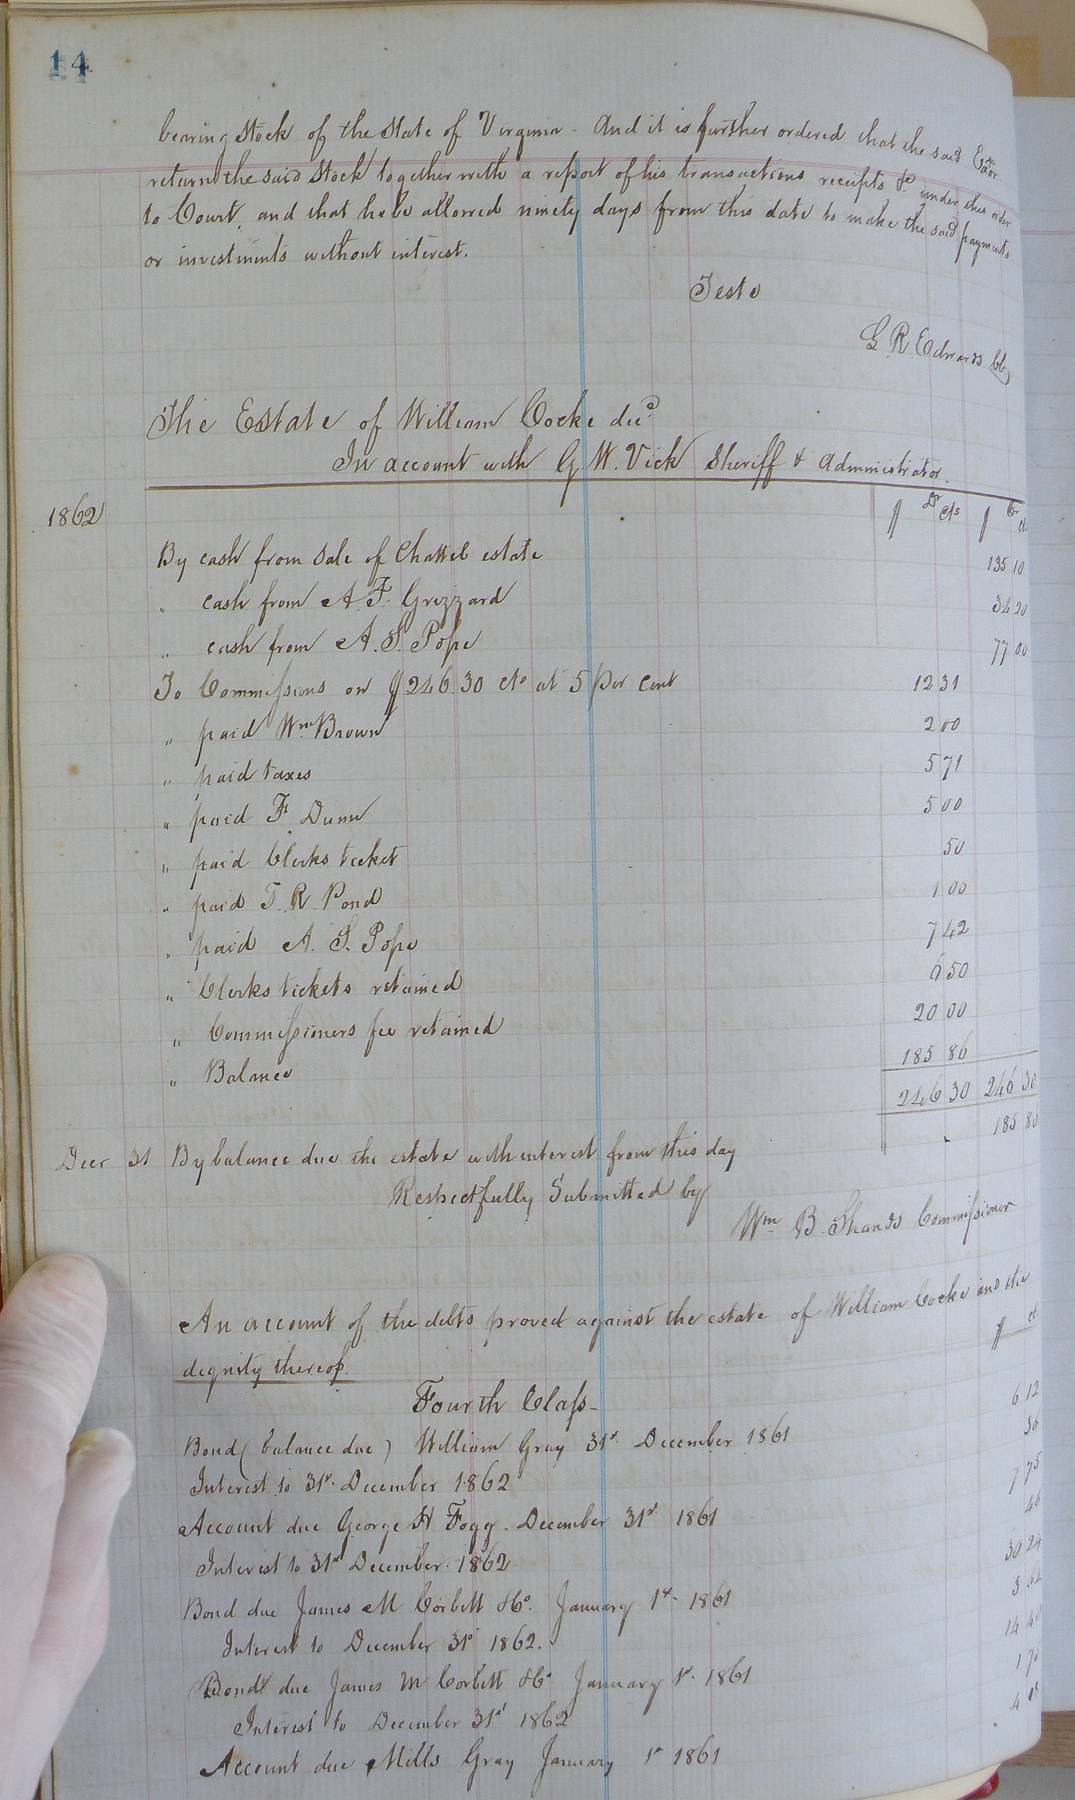 14
bearing stock of the State of Virginia. And it is further ordered that the said Exor
return the said Stock together with a report of his transactions receipts &c under this order
to Court, and that he be allowed ninety days from this date to make the said payments
or investments without interest.
Teste
L R Edwards Cl
The Estate of William Cocke decd
In account with G. W. Vick Sheriff & Administrator.
1862 $ Dr cts $ Cr cts
By cash from sale of Chattel estate 135 10
" cash from A. F. Grizzard 34 20
" cash from A. S. Pope 77 00
To Commissions on $246.30 cts at 5 per cent 12 31
" paid Wm Brown 2 00
" paid taxes 5 71
" paid F Dunn 5 00
" paid Clerks ticket 50
" paid T. R. Pond 1 00
" paid A. S. Pope 7 42
" Clerks tickets retained 6 50
" Commissioners fee retained 20 00
" Balance 185 86
246 30 246 30
Decr 31 By balance due the estate with interest from this day 185 86
Respectfully Submitted by
Wm B. Shands Commissioner
An account of the debts proved against the estate of William Cocke and the
dignity thereof. $ cts
Fourth Class
Bond (balance due) William Gray 31st December 1861 6 12
Interest to 31st December 1862 36
Account due George H Fogg. December 31st 1861 7 75
Interest to 31st December 1862 46
Bond due James M Corbett &c. January 1st 1861 30 24
Interest to December 31st 1862. 3 62
Bond due James M Corbett &c January 1st 1861 14 40
Interest to December 31st 1862 1 70
Account due Mills Gray January 1st 1861 4